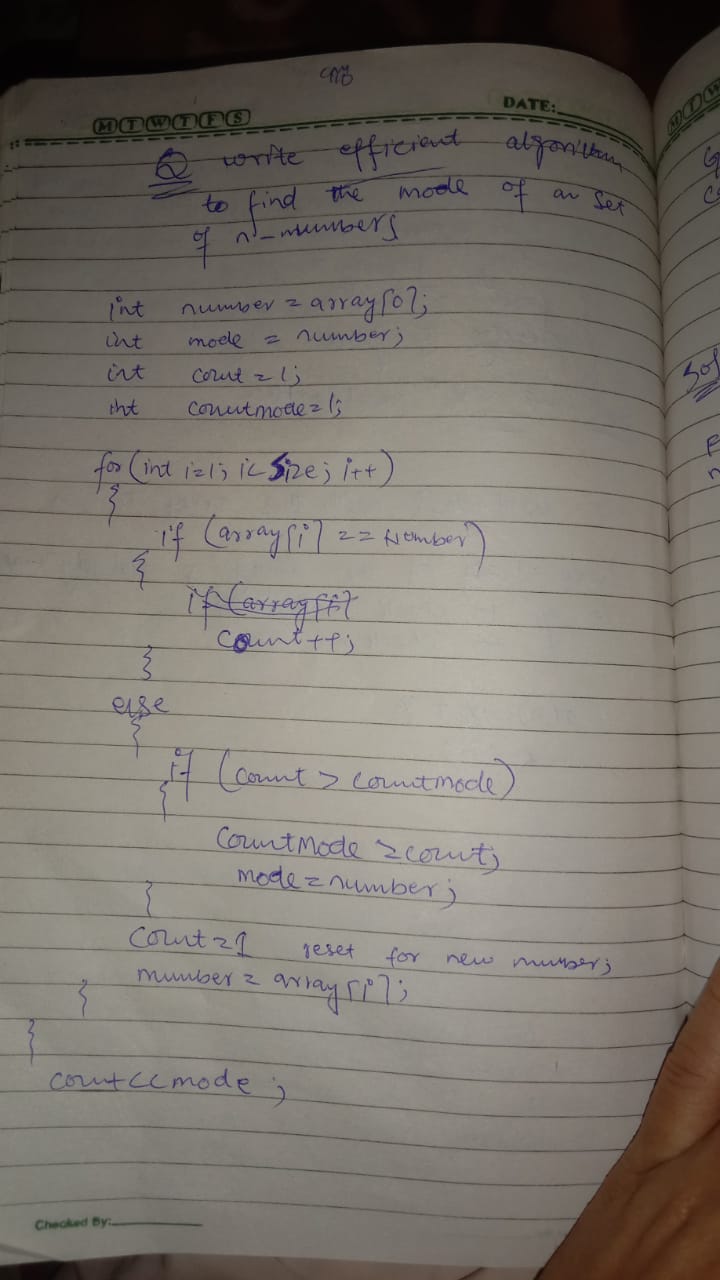 M T W T F S
DATE:
Q write efficient algorithm
to find the mode of an set
of n-numbers
int number = array[0];
int mode = number;
int count = 1;
int countmode = 1;
for (int i=1; i< Size; i++)
{
if (array[i] == Number)
{
if (array[i]
Count++;
}
else
{
if (count > countmode)
{
CountMode = count;
mode = number;
}
Count = 1 reset for new number;
number = array[i];
}
}
cout << mode ;
Checked By: